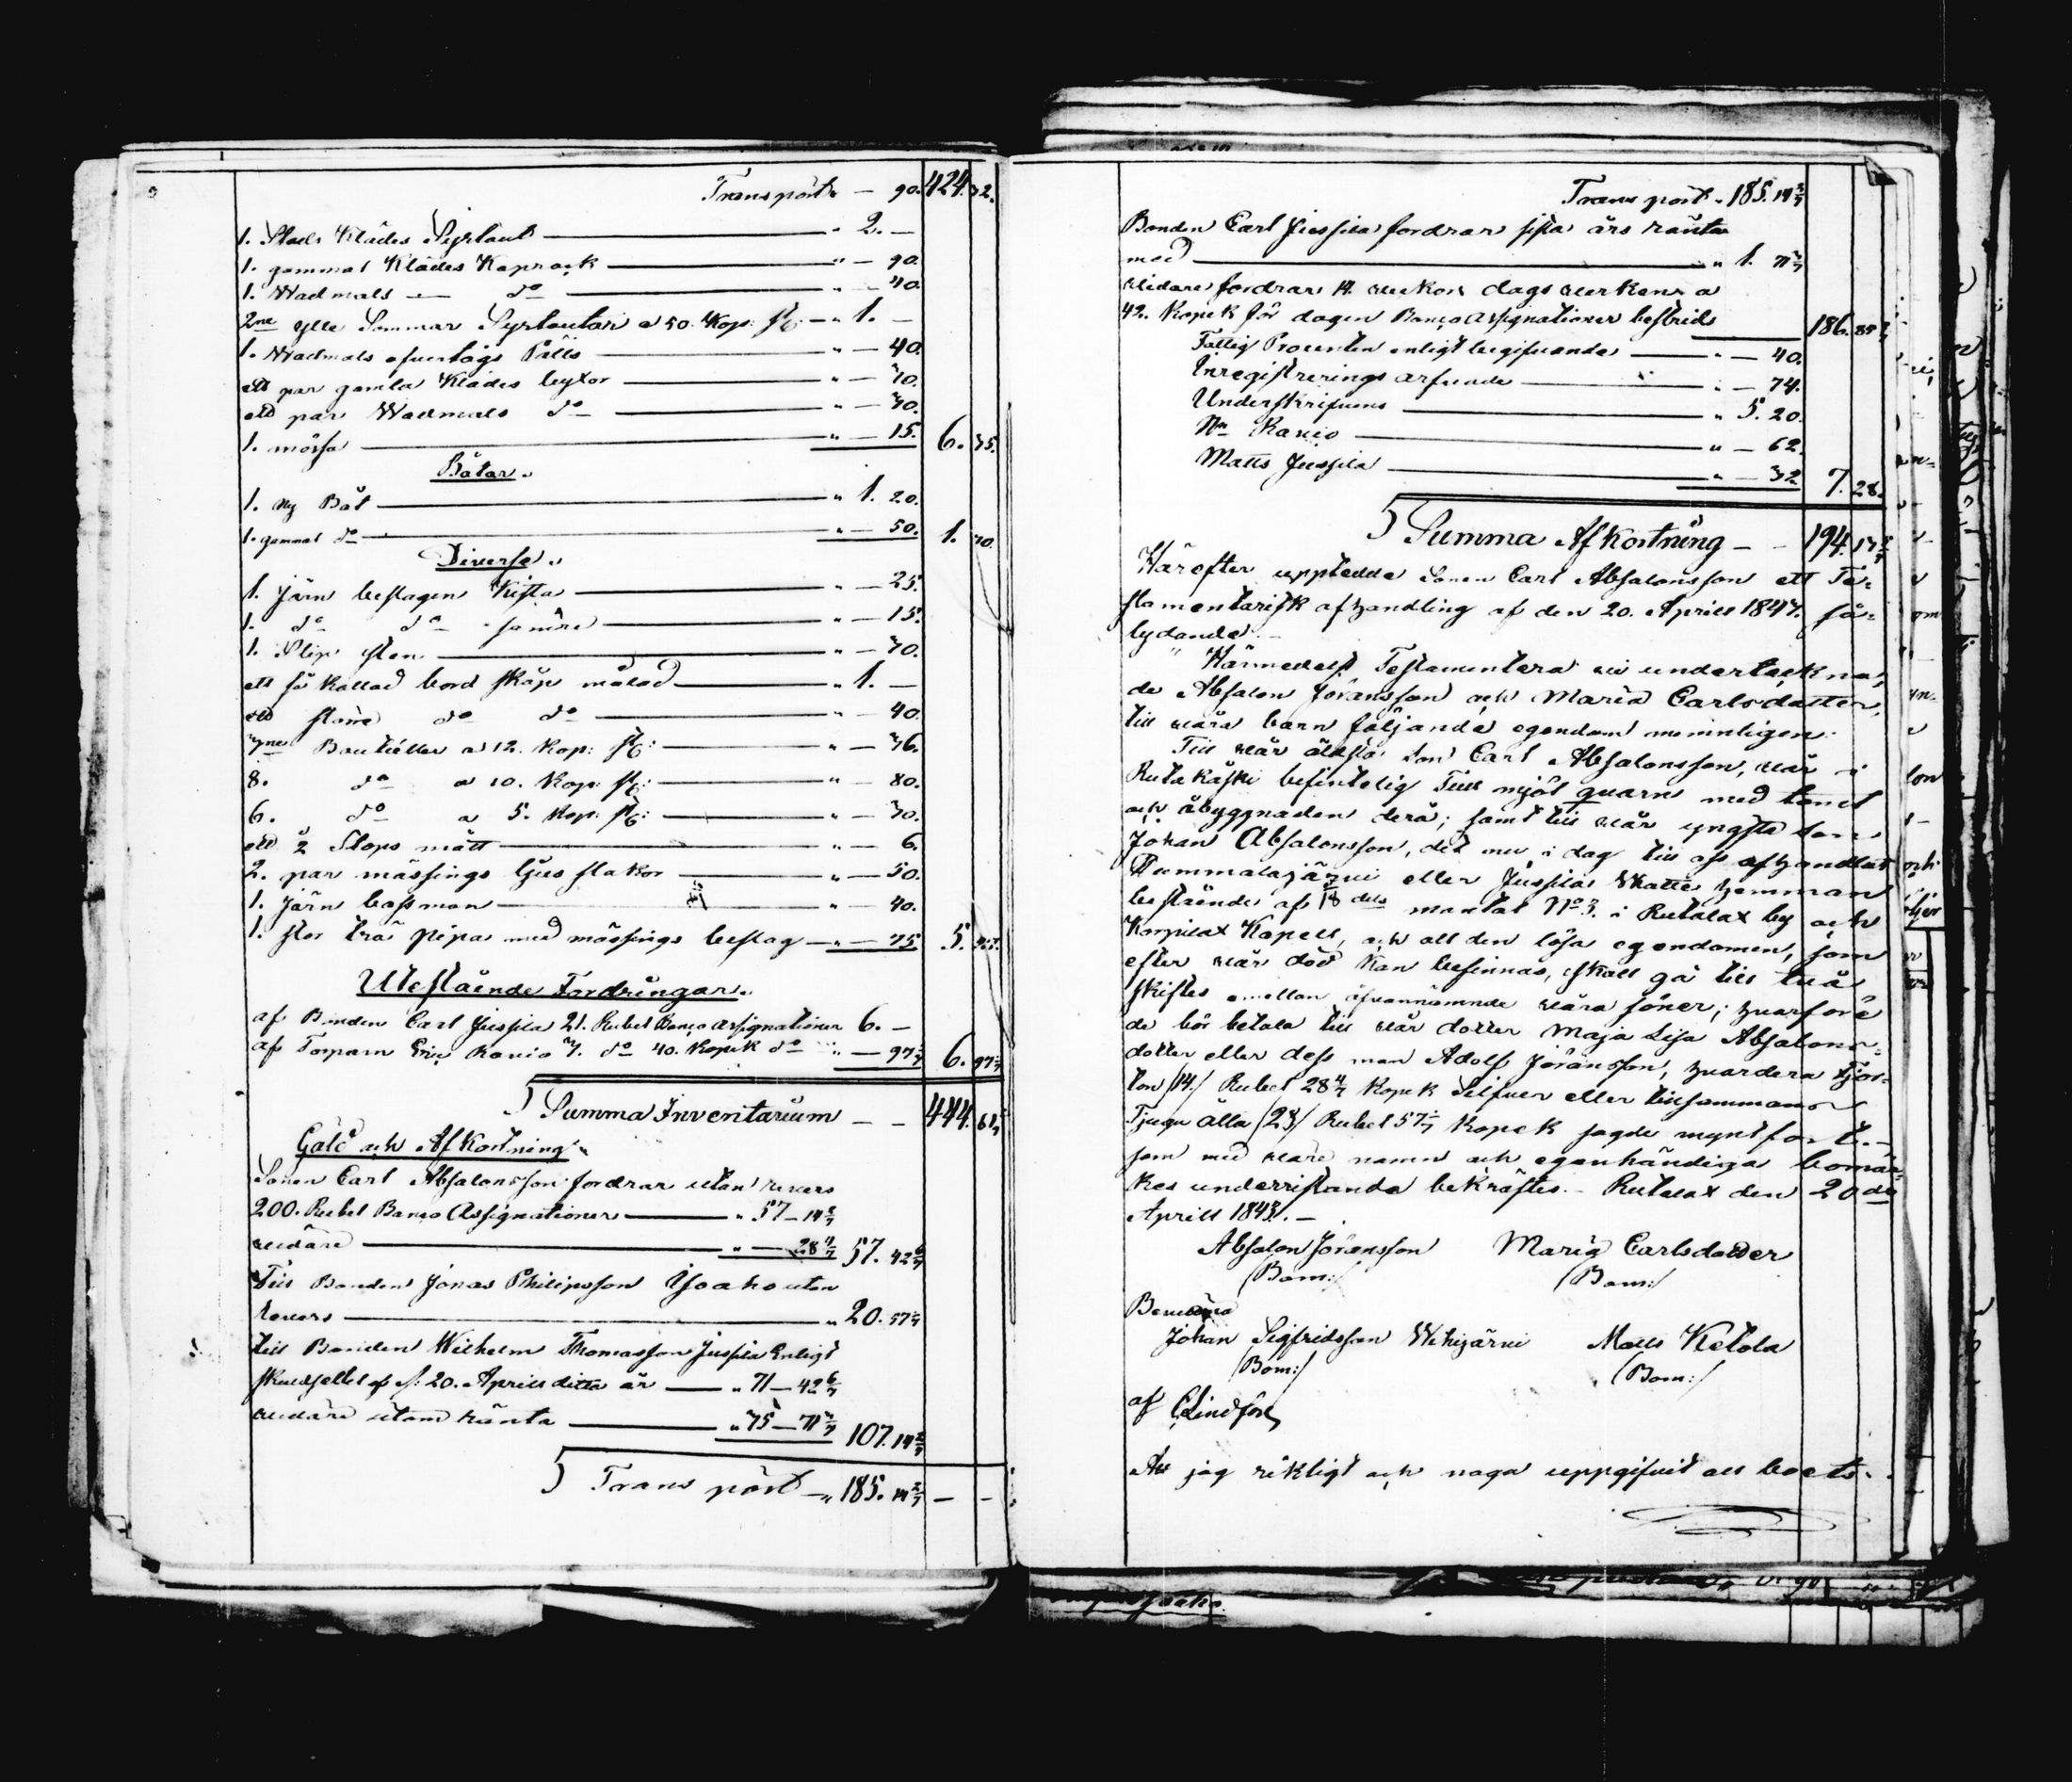 Transport — 90. 424. 32.
1. Blått Klädes Syrtout — " 2. —
1. gammal Klädes Kaprock — " — 90.
1. Wadmals — do — " — 70.
2ne ylle Sommar Syrtoutar a 50. Kop: st: — " 1. —
1. Wadmals öfvertågs Pälls — " — 40.
ett par gamla Klädes byxor — " — 30.
ett par Wadmals do — " — 30.
1. mössa — " — 15. 6. 35.
Båtar.
1. ny Båt — " 1. 20.
1. gammal do — " — 50. 1. 70.
Diverse.
1. järn beslagen Kista — " — 25.
1. do do sämre — " — 15.
1. Slip sten — " — 30.
ett så kallad bord skåp målad — " 1. —
ett större do do — " — 40.
3ne Bouteiller a 12. Kop: st: — " — 36.
8. do a 10. Kop: st: — " — 80.
6. do a 5. Kop: st: — " — 30.
ett 2 Stops mått — " — 6.
2. par mässings ljus stakar — " — 50.
1. järn bessman — " — 40.
1. stor trä pipa med mässings beslag — " — 75 5.
Utestående Fordringar.
af Bonden Carl Jussila 21. Rubel Banco Assignationer 6. —
af Torparn Eric Ranio 3. do 40. Kopek do " — 97 1/7 6. 97 1/7
Summa Inventarium — — 444. 61 1/7
Gäld och Afkortning.
Sonen Carl Absalonsson fordrar utan revers
200. Rubel Banco Assignationer — " 57 — 14 2/7
vidare — " — 28 4/7 57. 42 6/7
Till Bonden Jonas Philipsson Isoaho utan
revers — " 20. 57 1/7
till Bonden Wilhelm Thomasson Jussila Enligt
skuldsedel af d: 20. Aprill detta år — " 71 — 42 6/7
vidare utom ränta — " 35 — 71 3/7 107. 14 2/7
Transport — " 185. 14 2/7 — —
Transport " 185. 14 2/7
Bonden Carl Jussila fordrar sista års ränta
med — " 1. 71 3/7
vidare fordrar 14. veckors dags verken a
42. Kopek för dagen Banco Assignationer bestrids 186. 85 5/7
Fattig Procenten enligt begifvande — " — 40.
Inregistrerings arfvode — " — 74.
Underskrifvens — " 5. 20.
Nn Ranio — " — 62.
Matts Jussila — " — 32 7. 28.
Summa Afkortning — — 194. 13 5/7
Härefter uppledde Sonen Carl Absalonsson ett Te-
stamentarisk afhandling af den 20. Aprill 1843. så-
lydande: —
" Härmedelst Testamentera vi undertecknа-
de Absalon Jöransson och Maria Carlsdotter,
till våra barn följande egendom nemnligen:
Till vår äldsta son Carl Absalonsson, vår i
Rutakåski befintelig Tull mjöl quarn med tomt
och åbyggnaden derå; samt till vår yngsta son
Johan Absalonsson, det nu i dag till oss afhandlat
Kummalajärvi eller Jussila Skatte hemman
bestående af dels mantal No 3. i Rutalax by och
Korpilax Kapell, och all den lösa egendomen, som
efter vår död kan befinnas, skall gå till två
skiftes emellan ofvannämnde våra söner; hvarföre
de bör betala till vår dotter Maja Lisa Absalons-
dotter eller dess man Adolf Jöransson, hvardera Fjor-
ton /14./ Rubel 28 4/7 Kopek Silfver eller tillsammans
Tjugu åtta /28/ Rubel 57 1/7 Kopek sagde myntfort. —
som med våre namn och egenhändiga bomär-
kes underristande bekräftes. — Rutalax den 20de
Aprill 1843. —
Absalon Jöransson Maria Carlsdotter
(Bom:/ (Bom:/
Bevittna
Johan Sigfridsson Wehijärvi Matts Ketola
(Bom:/ (Bom:/
af C. Lindfors
Att jag riktigt och noga uppgifvit all boets.